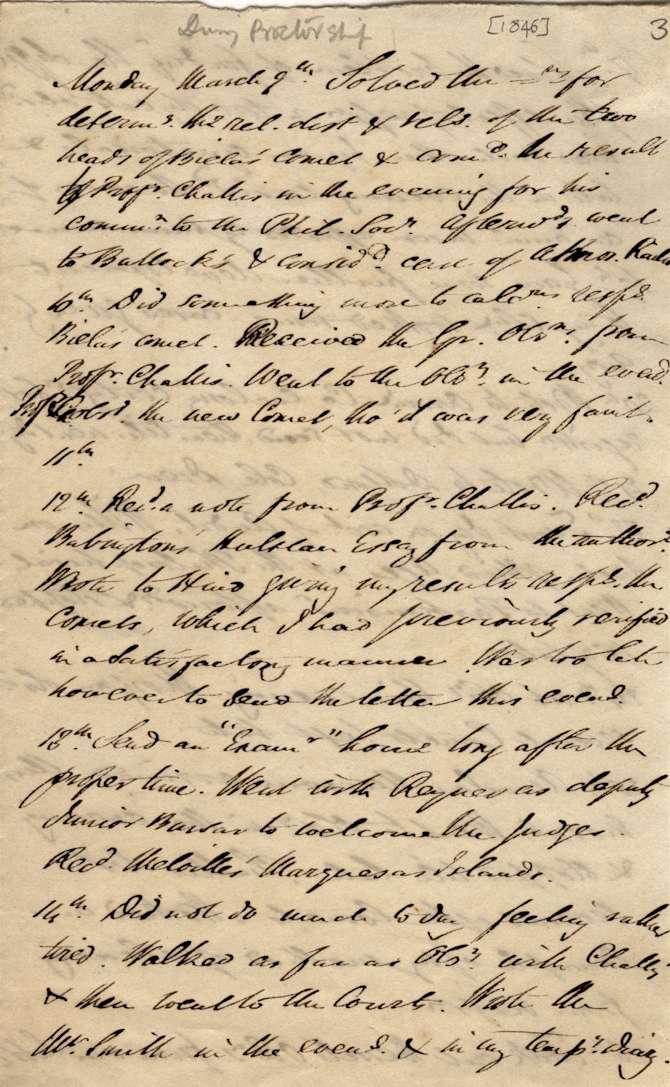 During Proctorship [1846] 3
Monday March 9th. Solved the =ns for
determg. the rel. dist & vels. of the two
heads of Biela's Comet & comd. the result
to Profr. Challis in the evening for his
commn. to the Phil. Socy. Afterwds. went
to Bullock's & considd. case of
10th. Did something more to calcns. respg.
Biela's comet. Received the Gr. Obsns. from
Profr. Challis. Went to the Obsy. in the eveng.
obsd. the new Comet, tho' it was very faint.
11th
12th Recd. a note from Profr. Challis. Recd.
Babington's Hulsean Essay from the author.
Wrote to Hind giving my results respg. the
Comets, which I had previously verified
in a satisfactory manner. Was too late
however to send the letter this eveng.
13th Send an "Examr" home long after the
proper time. Went with Raynes as deputy
Junior Bursar to welcome the Judges.
Recd. Melville's Marquesas Islands.
14th. Did not do much today feeling rather
tired. Walked as far as Obsy. with Challis
& then went to the Courts. Wrote
Mr. Smith in the eveng. & in my tempy. diary.